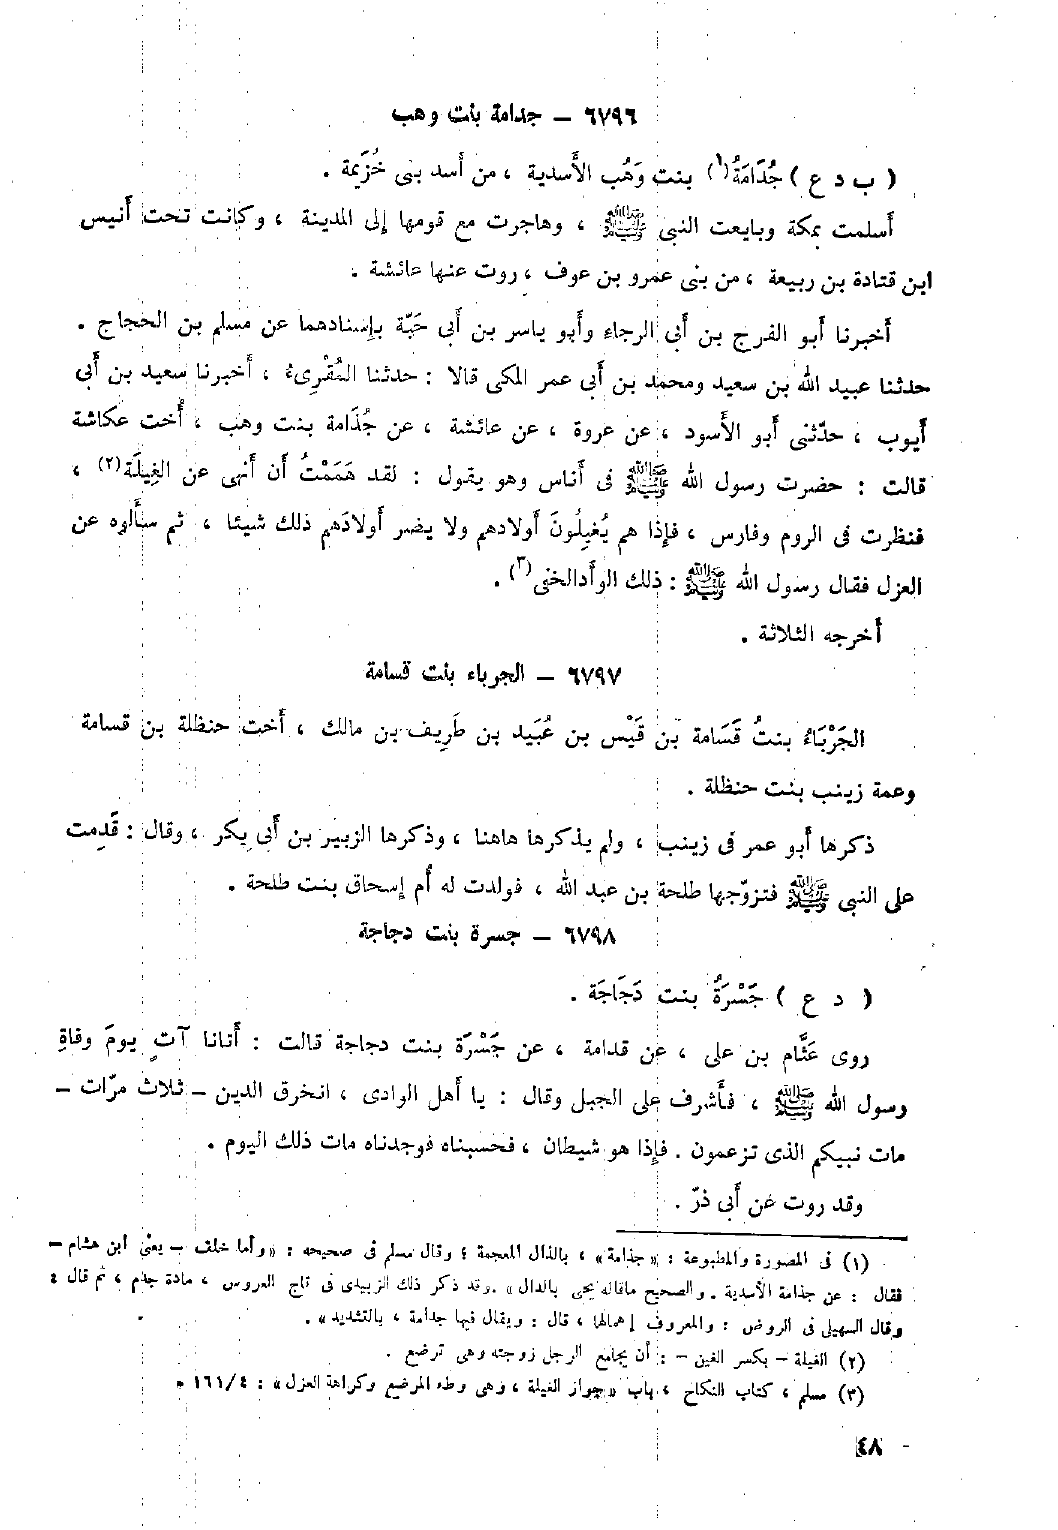 ٦٧٩٦ – جدامة بنت وهب
( ب د ع ) جُدَامَةُ(١) بنت وَهْب الأَسدية ، من أسد بنى خُزَيمة .
أسلمت بمكة وبايعت النبى ﷺ ، وهاجرت مع قومها إلى المدينة ، وكانت تحت أنيس
ابن قتادة بن ربيعة ، من بنى عمرو بن عوف ، روت عنها عائشة .
أخبرنا أبو الفرج بن أبى الرجاء وأبو ياسر بن أبى حَبّة بإسنادهما عن مسلم بن الحجاج .
حدثنا عبيد الله بن سعيد ومحمد بن أبى عمر المكى قالا : حدثنا المُقْرِىءُ ، أخبرنا سعيد بن أبى
أيوب ، حدّثنى أبو الأسود ، عن عروة ، عن عائشة ، عن جُدَامة بنت وهب ، أُخت عكاشة
قالت : حضرت رسول الله ﷺ فى أناس وهو يقول : لقد هَمَمْتُ أن أنهى عن الغِيلَة(٢) ،
فنظرت فى الروم وفارس ، فإذا هم يُغيلُونَ أولادهم ولا يضر أولادَهم ذلك شيئا ، ثم سألوه عن
العزل فقال رسول الله ﷺ : ذلك الوأدالخفى(٣) .
أخرجه الثلاثة .
٦٧٩٧ – الجرباء بنت قسامة
الجَرْبَاءُ بنتُ قَسَامة بن قَيْس بن عُبَيد بن طَرِيف بن مالك ، أخت حنظلة بن قسامة
وعمة زينب بنت حنظلة .
ذكرها أبو عمر فى زينب ، ولم يذكرها هاهنا ، وذكرها الزبير بن أبى بكر ، وقال : قَدِمت
على النبى ﷺ فتزوّجها طلحة بن عبد الله ، فولدت له أم إسحاق بنت طلحة .
٦٧٩٨ – جسرة بنت دجاجة
( د ع ) جَسْرَةُ بنت دَجَاجَة .
روى عَثَّام بن على ، عن قدامة ، عن جَسْرَة بنت دجاجة قالت : أتانا آتٍ يومَ وفاةِ
رسول الله ﷺ ، فأشرف على الجبل وقال : يا أهل الوادى ، انخرق الدين – ثلاث مرّات –
مات نبيكم الذى تزعمون . فإذا هو شيطان ، فحسبناه فوجدناه مات ذلك اليوم .
وقد روت عن أبى ذرّ .
(١) فى المصورة والمطبوعة : « جذامة » ، بالذال المعجمة ؛ وقال مسلم فى صحيحه : « وأما خلف – يعنى ابن هشام –
فقال : عن جذامة الأسدية . والصحيح ماقاله يحيى بالدال » .وقد ذكر ذلك الزبيدى فى تاج العروس ، مادة جذم ، ثم قال :
وقال السهيلى فى الروض : والمعروف إهمالها ، قال : ويقال فيها جدامة ، بالتشديد » .
(٢) الغيلة – بكسر الغين – : أن يجامع الرجل زوجته وهى ترضع .
(٣) مسلم ، كتاب النكاح ، باب « جواز الغيلة ، وهى وطء المرضع وكراهة العزل » : ٤/ ١٦١ .
٤٨